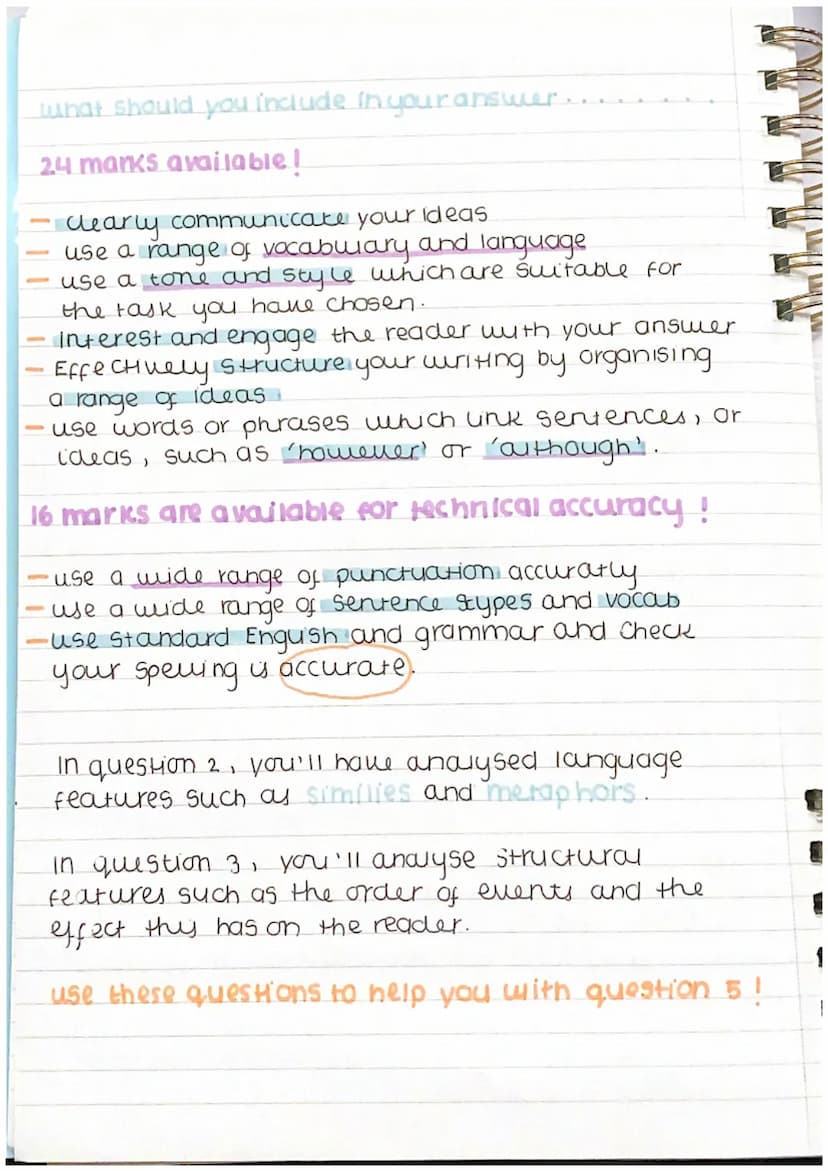 what should you include in your answer........
24 marks available!
- clearly communicate your ideas
- use a range of vocabulary and language
- use a tone and style which are suitable for
the task you have chosen.
- interest and engage the reader with your answer
- Effectively structure your writing by organising
a range of ideas
- use words or phrases which link sentences, or
ideas, such as 'however' or 'although'.
16 marks are available for technical accuracy!
- use a wide range of punctuation accuratly
- use a wide range of sentence types and vocab
- use standard English and grammar and check
your spelling is accurate.
In question 2, you'll have analysed language
features such as similies and metaphors.
In question 3, you'll analyse structural
features such as the order of events and the
effect this has on the reader.
use these questions to help you with question 5!